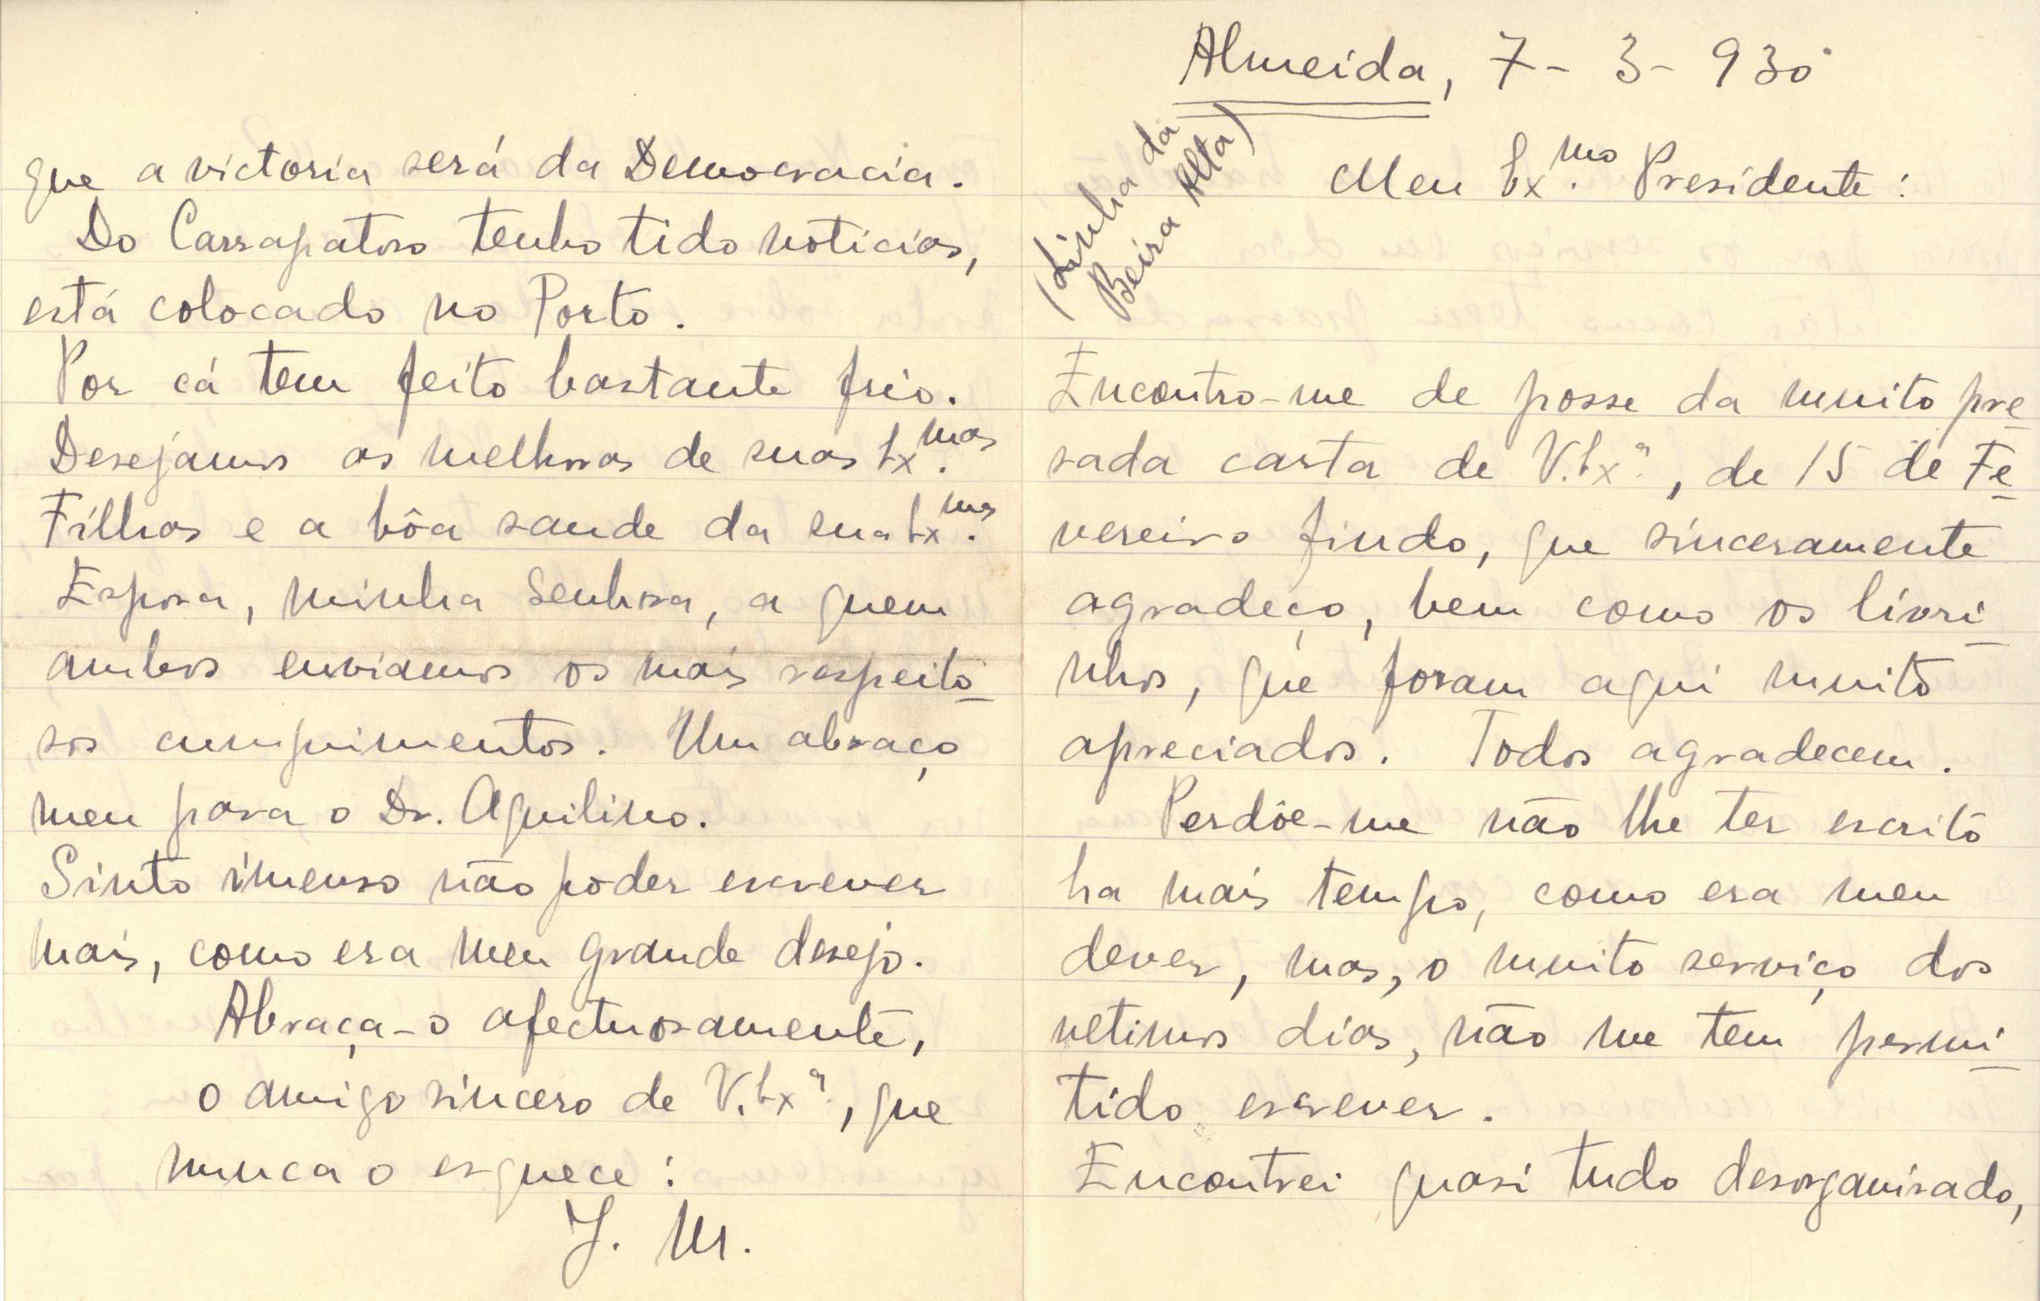 que a victoria será da Democracia.
Do Carrapatoso tenho tido noticias,
está colocado no Porto.
Por cá tem feito bastante frio.
Desejamos as melhoras de suas Ex.mas
Filhas e a bôa saude da sua Ex.ma
Esposa, minha Senhora, a quem
ambos enviamos os mais respeito-
sos cumprimentos. Um abraço
meu para o Dr. Aquilino.
Sinto imenso não poder escrever
mais, como era meu grande desejo.
Abraça-o afectuosamente,
o amigo sincero de V. Ex.ª, que
nunca o esquece:
J. M.
Almeida, 7-3-930
(Linha da
Beira Alta)
Meu Ex.mo Presidente:
Encontro-me de posse da muito pre-
sada carta de V. Ex.ª, de 15 de Fe-
vereiro findo, que sinceramente
agradeço, bem como os livri-
nhos, que foram aqui muito
apreciados. Todos agradecem.
Perdôe-me não lhe ter escrito
ha mais tempo, como era meu
dever, mas, o muito serviço dos
ultimos dias, não me tem permi-
tido escrever.
Encontrei quasi tudo desorganisado,